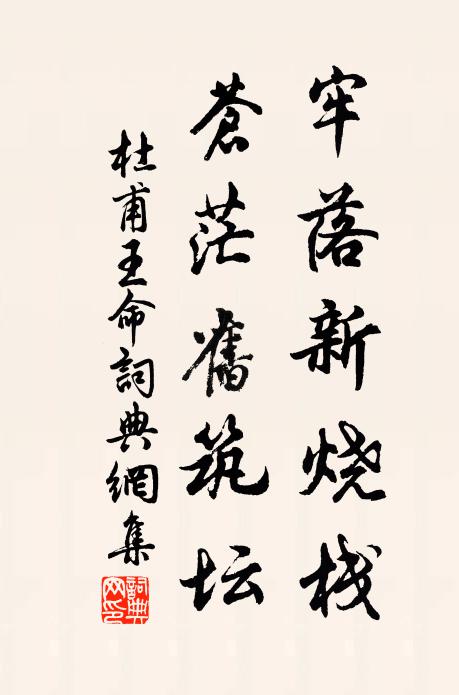 牢落新烧栈
蒼茫舊筑坛
杜甫王命詞典網集
詞典网印